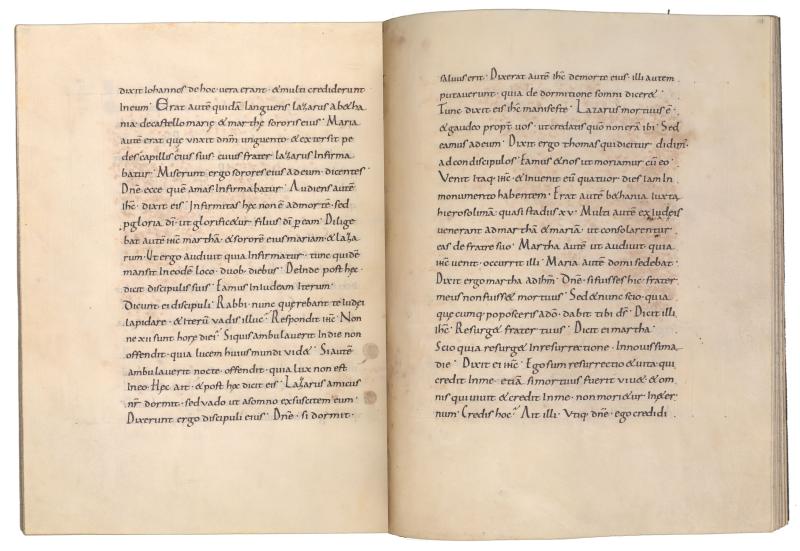 dixit Iohannes de hoc· vera erant· & multi crediderunt
Ineum· Erat autē quidā languens lazarus abetha
nia· decastello marię & marthę sororis eius· Maria
autē erat quę vnxit dnm̄ unguento· & extersit pe
des capillis eius suis· cuius frater lazarus Infirma
batur· Miserunt ergo sorores eius adeum· dicentes·
Dn̄e ecce quē amas Infirmabatur· Audiens autē
ihc̄· dixit eis· Infirmitas hęc nonē admortē· sed
pgloria dī· ut glorific&ur filius dī p eam· Dilige
bat autē ihc̄ marthā· & sororē eius mariam· & laza
rum· Ut ergo audiuit quia Infirmatur· tunc quidē
mansit Ineodē loco· duob· diebus· Deinde post hęc·
dicit discipulis suis· Eamus Iniudeam Iterum·
Dicunt ei discipuli· Rabbi· nunc querebant te Iudei
lapidare· & iterū vadis illuc· Respondit ihc̄· Non
ne xii sunt horę diei· Siquis ambulauerit Indie non
offendit· quia lucem huius mundi vid&· Si autē
ambulauerit nocte· offendit· quia lux non est
Ineo· Hęc ait· & post hęc dicit eis· Lazarus amicus
nr̄ dormit· sed vado ut asomno exsuscitem eum·
Dixerunt ergo discipuli eius· Dn̄e· si dormit·
saluus erit· Dixerat autē ihc̄ demorte eius· illi autem
putauerunt· quia de dormitione somni dicer&·
Tunc dixit eis ihc̄ manifeste· Lazarus mortuus ē·
& gaudeo propt̄ uos· ut credatis quō non erā ibi· Sed
eamus adeum· Dixit ergo thomas qui dicitur didim·
ad condiscipulos· Eamus & nos ut moriamur cū eo·
Venit Itaq· ihc̄· & Inuenit eū quatuor dies Iam In
monumento habentem· Erat autē b&hania Iuxta
hierosolimā· quasi stadiis xv· Multi autē ex Iudeis
venerant admarthā & mariā· ut consolarentur
eas de fratre suo· Martha autē ut audiuit quia
ihc̄ venit· occurrit illi· Maria autē domi sedebat·
Dixit ergo martha adihm̄· Dn̄e· si fuisses hic· frater
meus nonfuiss& mortuus· Sed & nunc scio· quia
quęcumq· poposceris adō· dabit tibi dr̄· Dicit illi
ihc̄· Resurg& frater tuus· Dicit ei martha·
Scio quia resurg& Inresurrectione· Innouissima
die· Dixit ei ihc̄· Ego sum resurrectio & uita· qui
credit Inme· etiā si mortuus fuerit viu&· & om
nis qui uiuit & credit Inme· non mori&ur In&er
num· Credis hoc· Ait illi· Vtiq· dn̄e· ego credidi